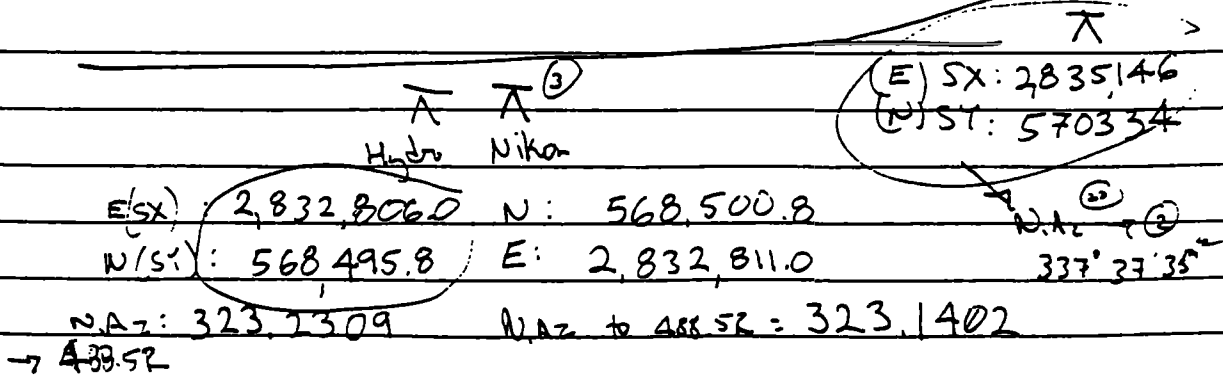 (E) SX: 2,835,146
(N) SY: 570334
③
Hydro Nikon
E(SX): 2,832,806.0 N: 568,500.8
N(SY): 568495.8 E: 2,832,811.0
N.Az → ②
337° 37' 35"
N.Az: 323.2309 N.Az to 488.52 = 323.1402